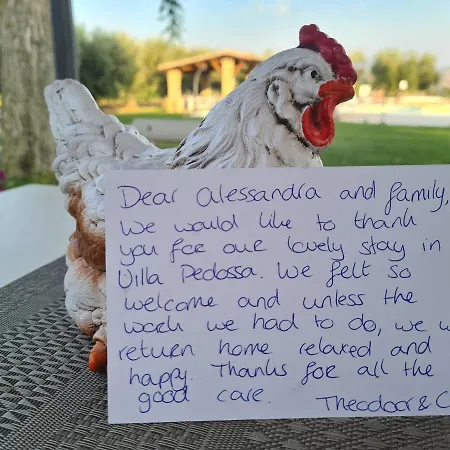 Dear Alessandra and family,
We would like to thank
you for our lovely stay in
Villa Pedossa. We felt so
welcome and unless the
work we had to do, we w
return home relaxed and
happy. Thanks for all the
good care. Theodoor & C